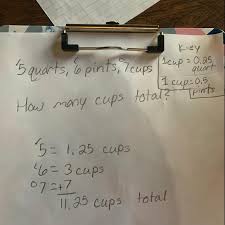 Key
1 cup = 0.25
quart
1 cup = 0.5
pints
5 quarts, 6 pints, 7 cups
How many cups total?
5 = 1.25 cups
6 = 3 cups
7 = +7
11.25 cups total